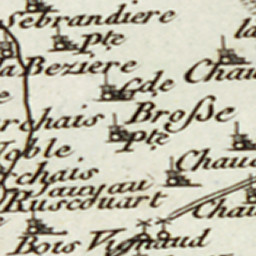 ebrandiere
la
Pte
la Beziere
Gde
Chau
Broſse
rchais
Pte
Noble
Chau
rchais
Ruscouart
Chau
Bois Vignaud